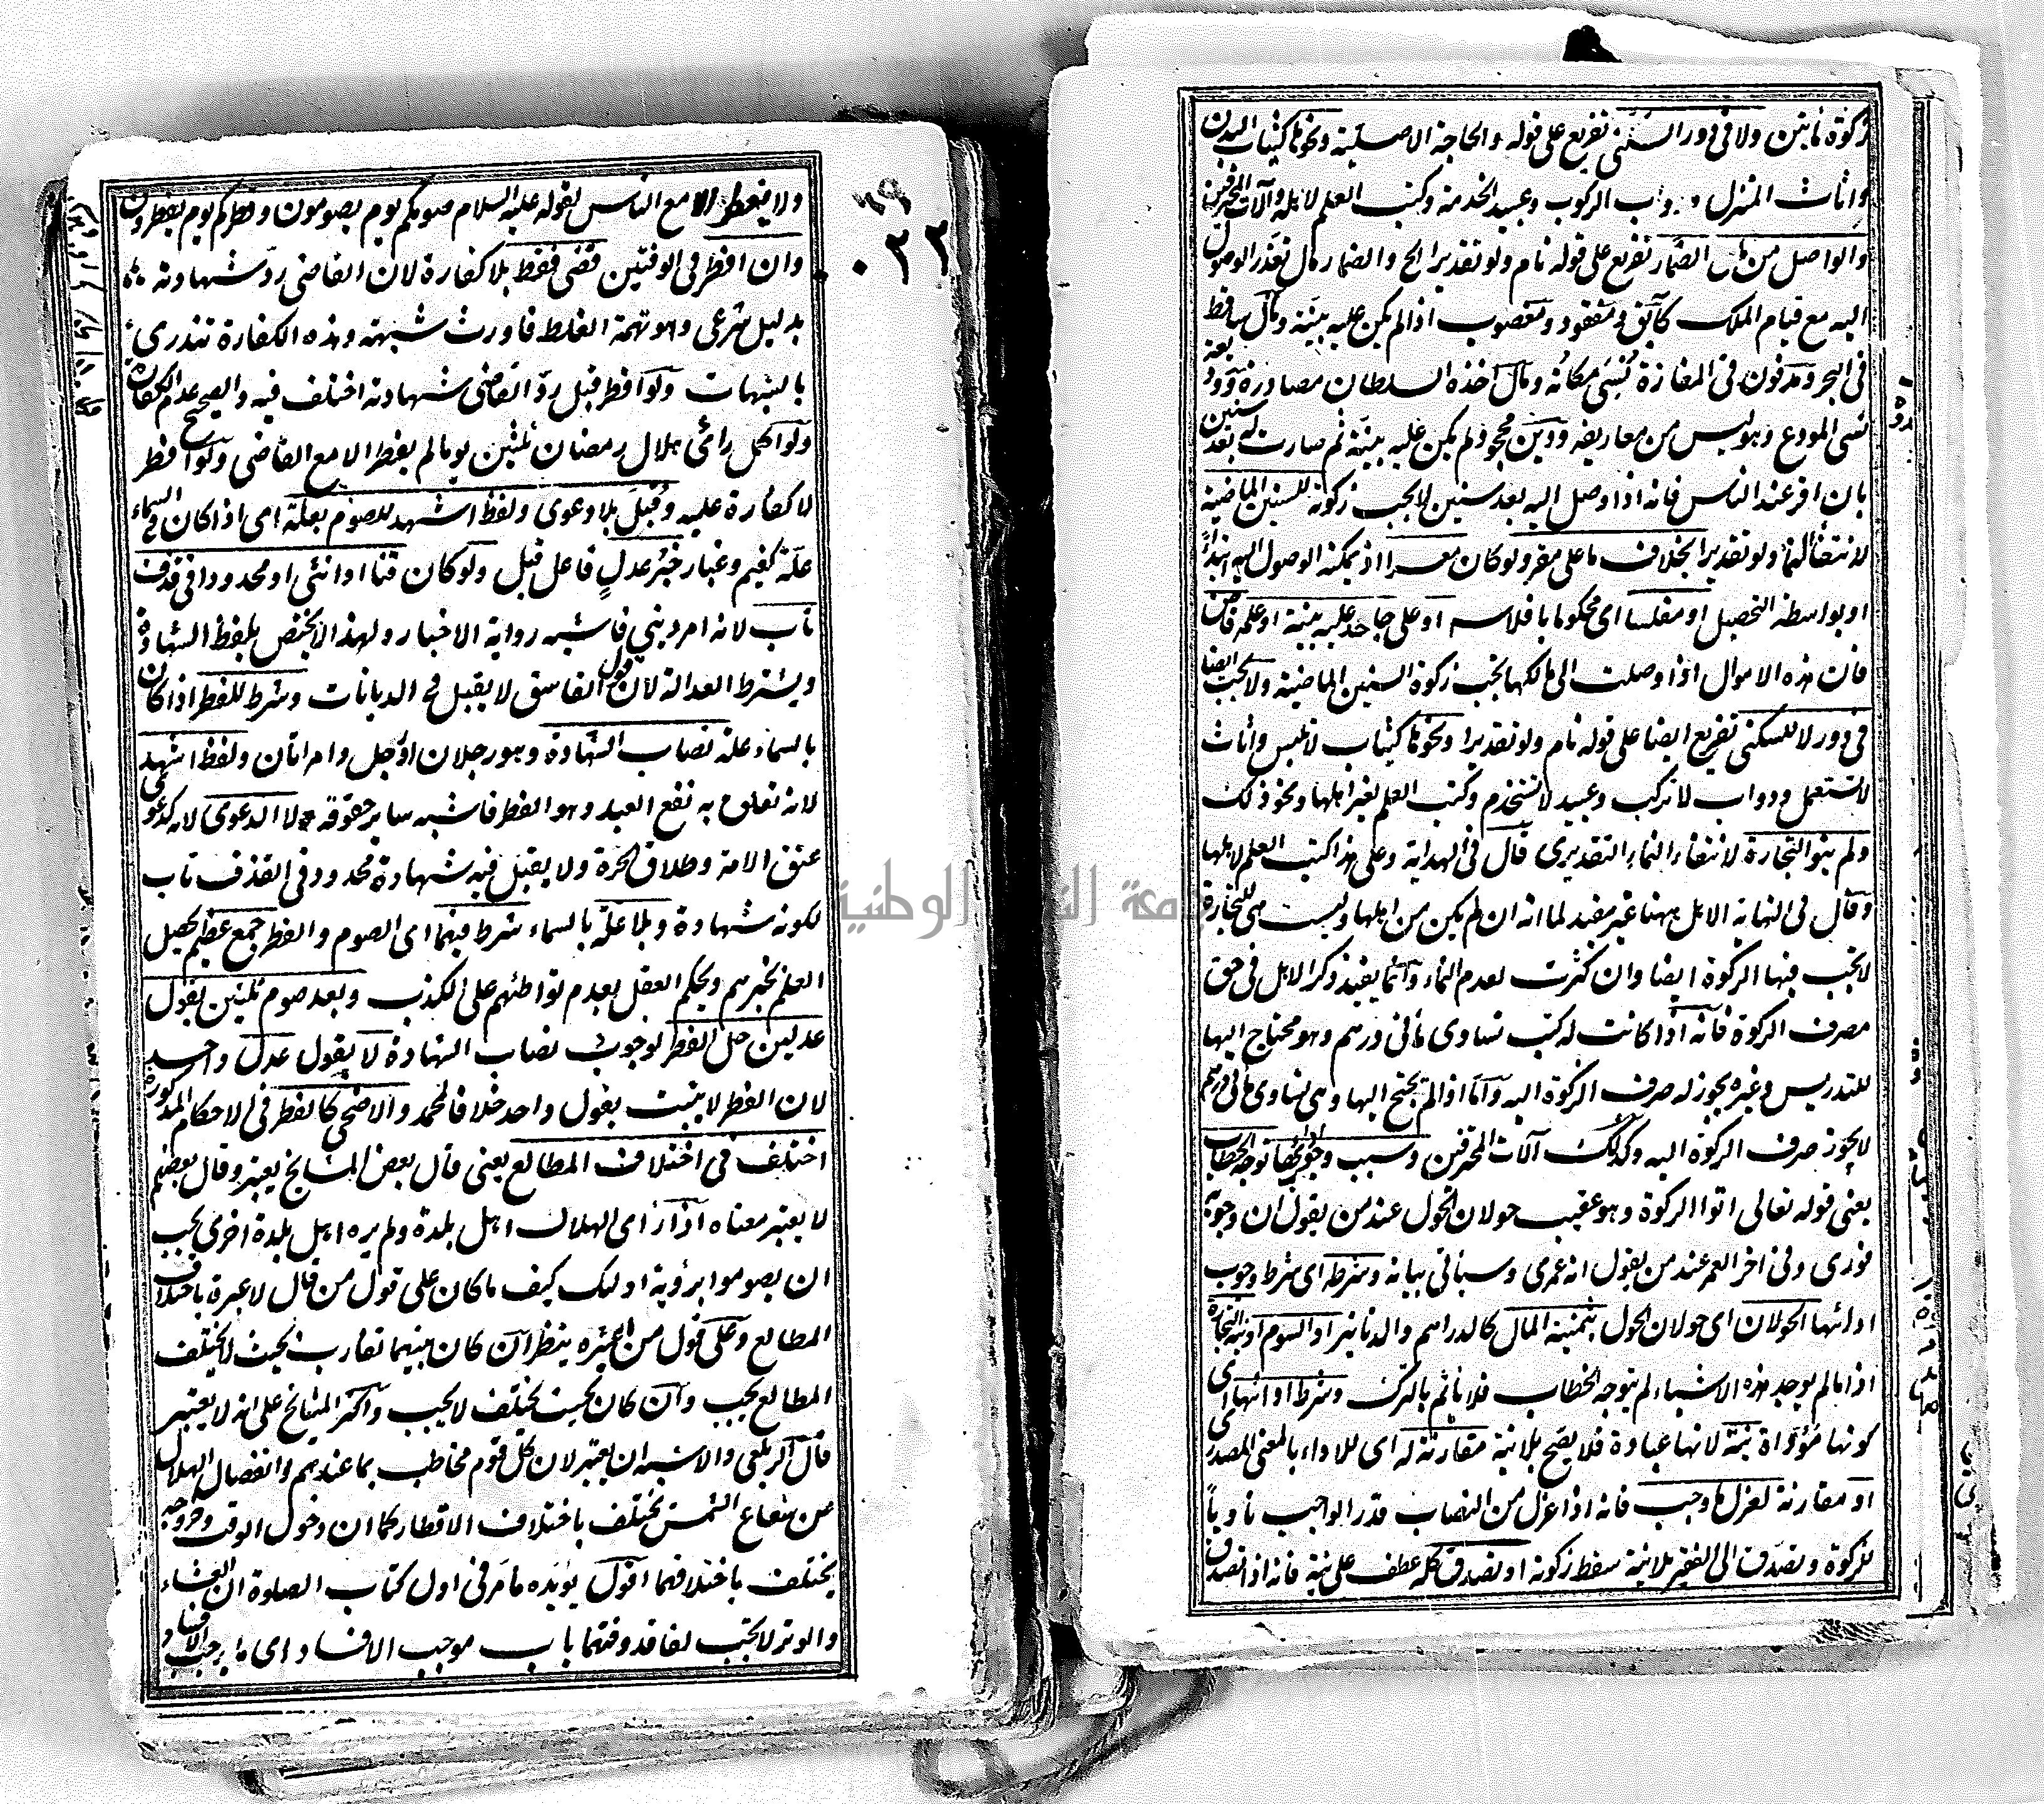 زكوة مابتن ولا في دور السكنى تفريع على قوله والحاجة الاصلية ونحوها كثياب البدن
واثاث المنزل ودواب الركوب وعبيد الخدمة وكتب العلم لاهله وآلات المحترفين
والواصل من مال الضمار تفريع على قوله نام ولو تقديرا الخ والضمار مال تعذر الوصول
اليه مع قيام الملك كآبق ومفقود ومغصوب اذا لم يكن عليه بينة ومال ساقط
في البحر ومدفون في المفازة نُسَى مكانه ومال اخذه السلطان مصادرة وديعة
نسى المودع وهو ليس من معاريفه ودين مجحود لم يكن عليه بينة ثم صارت له بعد سنين
بان اقر عند الناس فانه اذا وصل اليه بعد سنين لا يجب زكوته للسنين الماضية
لانتفاء النما ولو تقديرا بخلاف ما على مقر ولو كان معسرا اذ يمكنه الوصول اليه ابتداء
او بواسطة التحصيل او مفلسا اى محكوما بافلاسه او على جاحد عليه بينة او علمه قاض
فان هذه الاموال اذا وصلت الى مالكها يجب زكوة السنين الماضية ولا يجب ايضا
في دور لا للسكنى تفريع ايضا على قوله نام ولو تقديرا ونحوها كثياب لا تلبس واثاث
لا تستعمل ودواب لا تركب وعبيد لا تستخدم وكتب العلم لغير اهلها ونحو ذلك
ولم ينو التجارة لانتفاء النماء التقديرى قال في الهداية وعلى هذا كتب العلم لاهلها
وقال في النهاية الاهل ههنا غير مفيد لما انه ان لم يكن من اهلها وليست هي للتجارة
لا يجب فيها الزكوة ايضا وان كثرت لعدم النماء وانما يفيد ذكر الاهل في حق
مصرف الزكوة فانه اذا كانت له كتب تساوى مأتى درهم وهو محتاج اليها
للتدريس وغيره يجوز له صرف الزكوة اليه واما اذا لم يحتج اليها وهي تساوى مأتى درهم
لا يجوز صرف الزكوة اليه وكذلك آلات المحترفين وسبب وجوب ادائها توجه الخطاب
يعنى قوله تعالى اتوا الزكوة وهو عقيب حولان الحول عند من يقول ان وجوبه
فورى وفي اخر العمر عند من يقول انه عمرى وسيأتى بيانه وشرطه اى شرط وجوب
ادائها الحولان اى حولان الحول بثمنية المال كالدراهم والدنانير او السوم او نية التجارة
اذ ما لم يوجد هذه الاشياء لم يتوجه الخطاب فلا يأثم بالترك وشرط ادائها اى
كونها مؤداة نية لانها عبادة فلا يصح بلا نية مقارنة له اى للاداء بالمعنى المصدرى
او مقارنة لعزل ما وجب فانه اذا عزل من النصاب قدر الواجب ناويا
للزكوة وتصدق الى الفقير بلا نية سقط زكوته او تصدق كله عطف على نية فانه اذا تصدق
٦٩
٠٢٢
ولا يفطر الا مع الناس لقوله عليه السلام صومكم يوم يصومون وفطركم يوم يفطرون
وان افطر في الوقتين قضى فقط بلا كفارة لان القاضى رد شهادته
بدليل شرعى وهو تهمة الغلط فاورث شبهة وهذه الكفارة تندرى
بالشبهات ولو افطر قبل رد القاضى شهادته اختلف فيه والصحيح عدم الكفارة
ولو اكمل رائى هلال رمضان ثلثين يوما لم يفطر الا مع القاضى ولو افطر
لا كفارة عليه وقُبل بلا دعوى ولفظ اشهد للصوم بعلة اى اذا كان في السماء
علة كغيم وغبار خبرُ عدلٍ فاعل قبل ولو كان قنا او انثى او محدودا في قذف
تاب لانه امر دينى فاشبه رواية الاخبار ولهذا لا يختص بلفظ الشهادة
ويشترط العدالة لان قول الفاسق لا يقبل في الديانات وشرط للفطر اذا كان
بالسماء علة نصاب الشهادة وهو رجلان او رجل وامراتان ولفظ اشهد
لانه تعلق به نفع العبد وهو الفطر فاشبه سائر حقوقه لا الدعوى لانه كدعوى
عتق الامة وطلاق الحرة ولا يقبل فيه شهادة محدود في القذف تاب
لكونه شهادة وبلا علة بالسماء شرط فيهما اى الصوم والفطر جمع عظيم يحصل
العلم بخبرهم ويحكم العقل بعدم تواطئهم على الكذب وبعد صوم ثلثين بقول
عدلين حل الفطر لوجود نصاب الشهادة لا بقول عدل واحد
لان الفطر لا يثبت بقول واحد خلافا لمحمد والاضحى كالفطر في الاحكام المذكورة
اختلف في اختلاف المطالع يعنى قال بعض المشايخ يعتبر وقال بعضهم
لا يعتبر معناه اذا رأى الهلال اهل بلدة ولم يره اهل بلدة اخرى يجب
ان يصوموا برؤية اولئك كيف ما كان على قول من قال لا عبرة باختلاف
المطالع وعلى قول من اعتبره ينظر ان كان بينهما تقارب بحيث لا يختلف
المطالع يجب وان كان بحيث يختلف لا يجب واكثر المشايخ على انه لا يعتبر
قال الزيلعى والاشبه ان يعتبر لان كل قوم مخاطب بما عندهم وانفصال الهلال
من شعاع الشمس يختلف باختلاف الاقطار كما ان دخول الوقت وخروجه
يختلف باختلافهما اقول يؤيده ما مر في اول كتاب الصلوة ان العشاء
والوتر لا يجب لفاقد وقتهما باب موجب الافساد اى ما يوجب الافساد